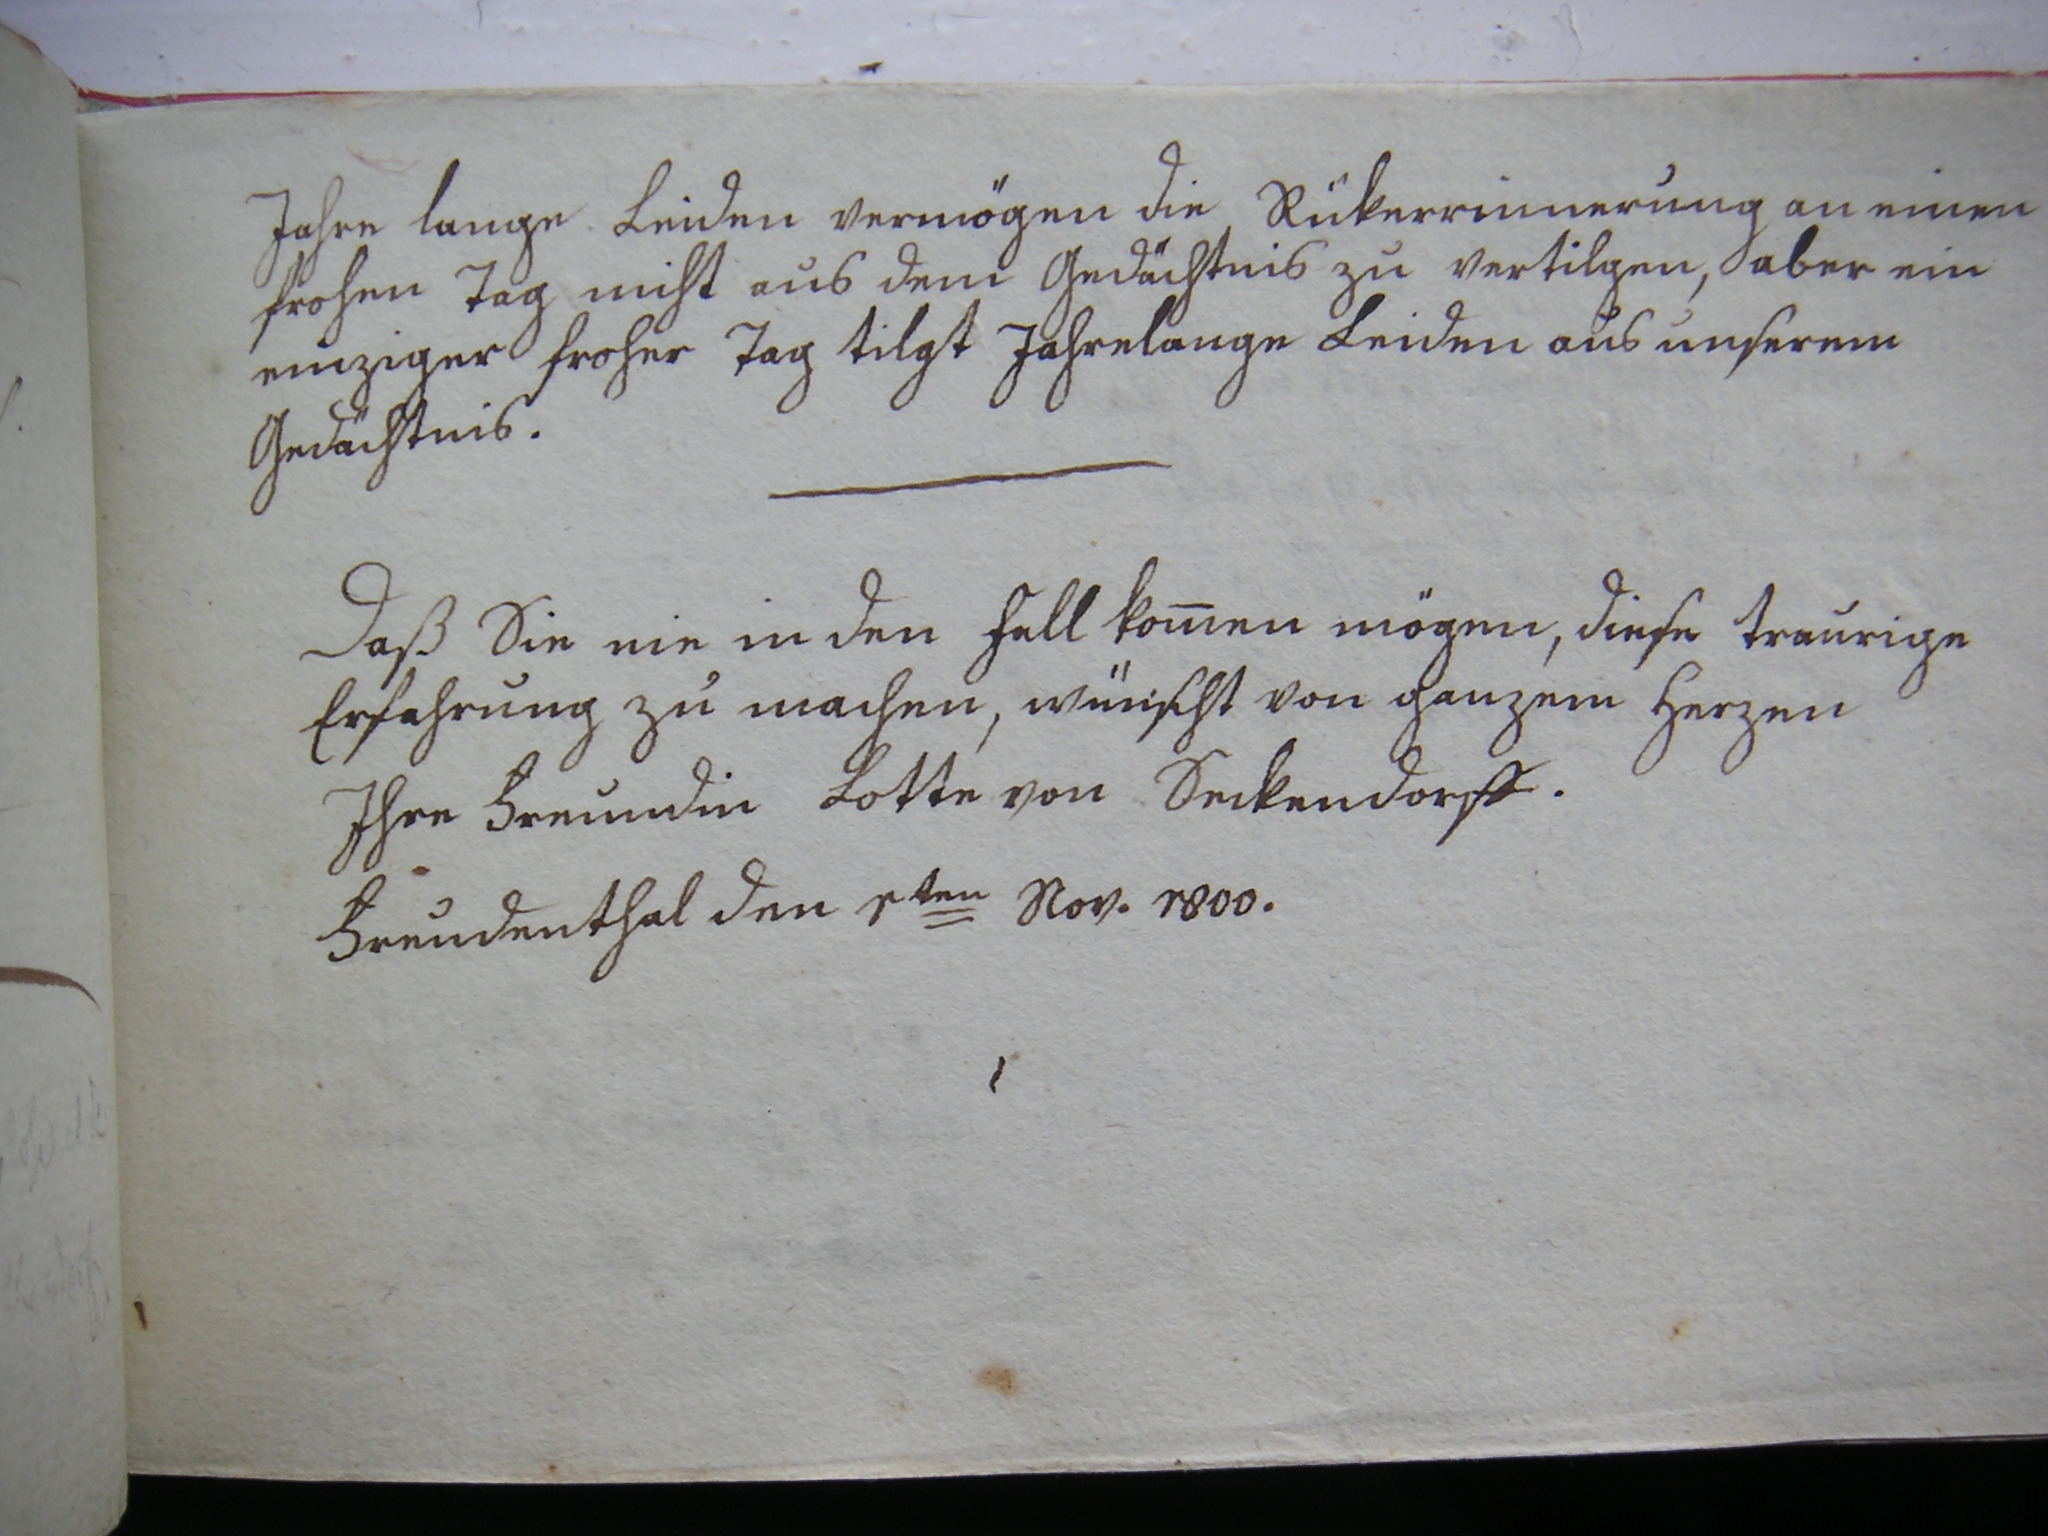 Jahre lange Leiden vermögen die Rükerrinnerung an einen
frohen Tag nicht aus dem Gedächtnis zu vertilgen, aber ein
einziger froher Tag tilgt Jahrelange Leiden aus unserem
Gedächtnis.
Daß Sie nie in den Fall kom̅en mögen, diese traurige
Erfahrung zu machen, wünscht von ganzem Herzen
Ihre Freundin Lotte von Seckendorff.
Freudenthal den ten Nov. 1800.